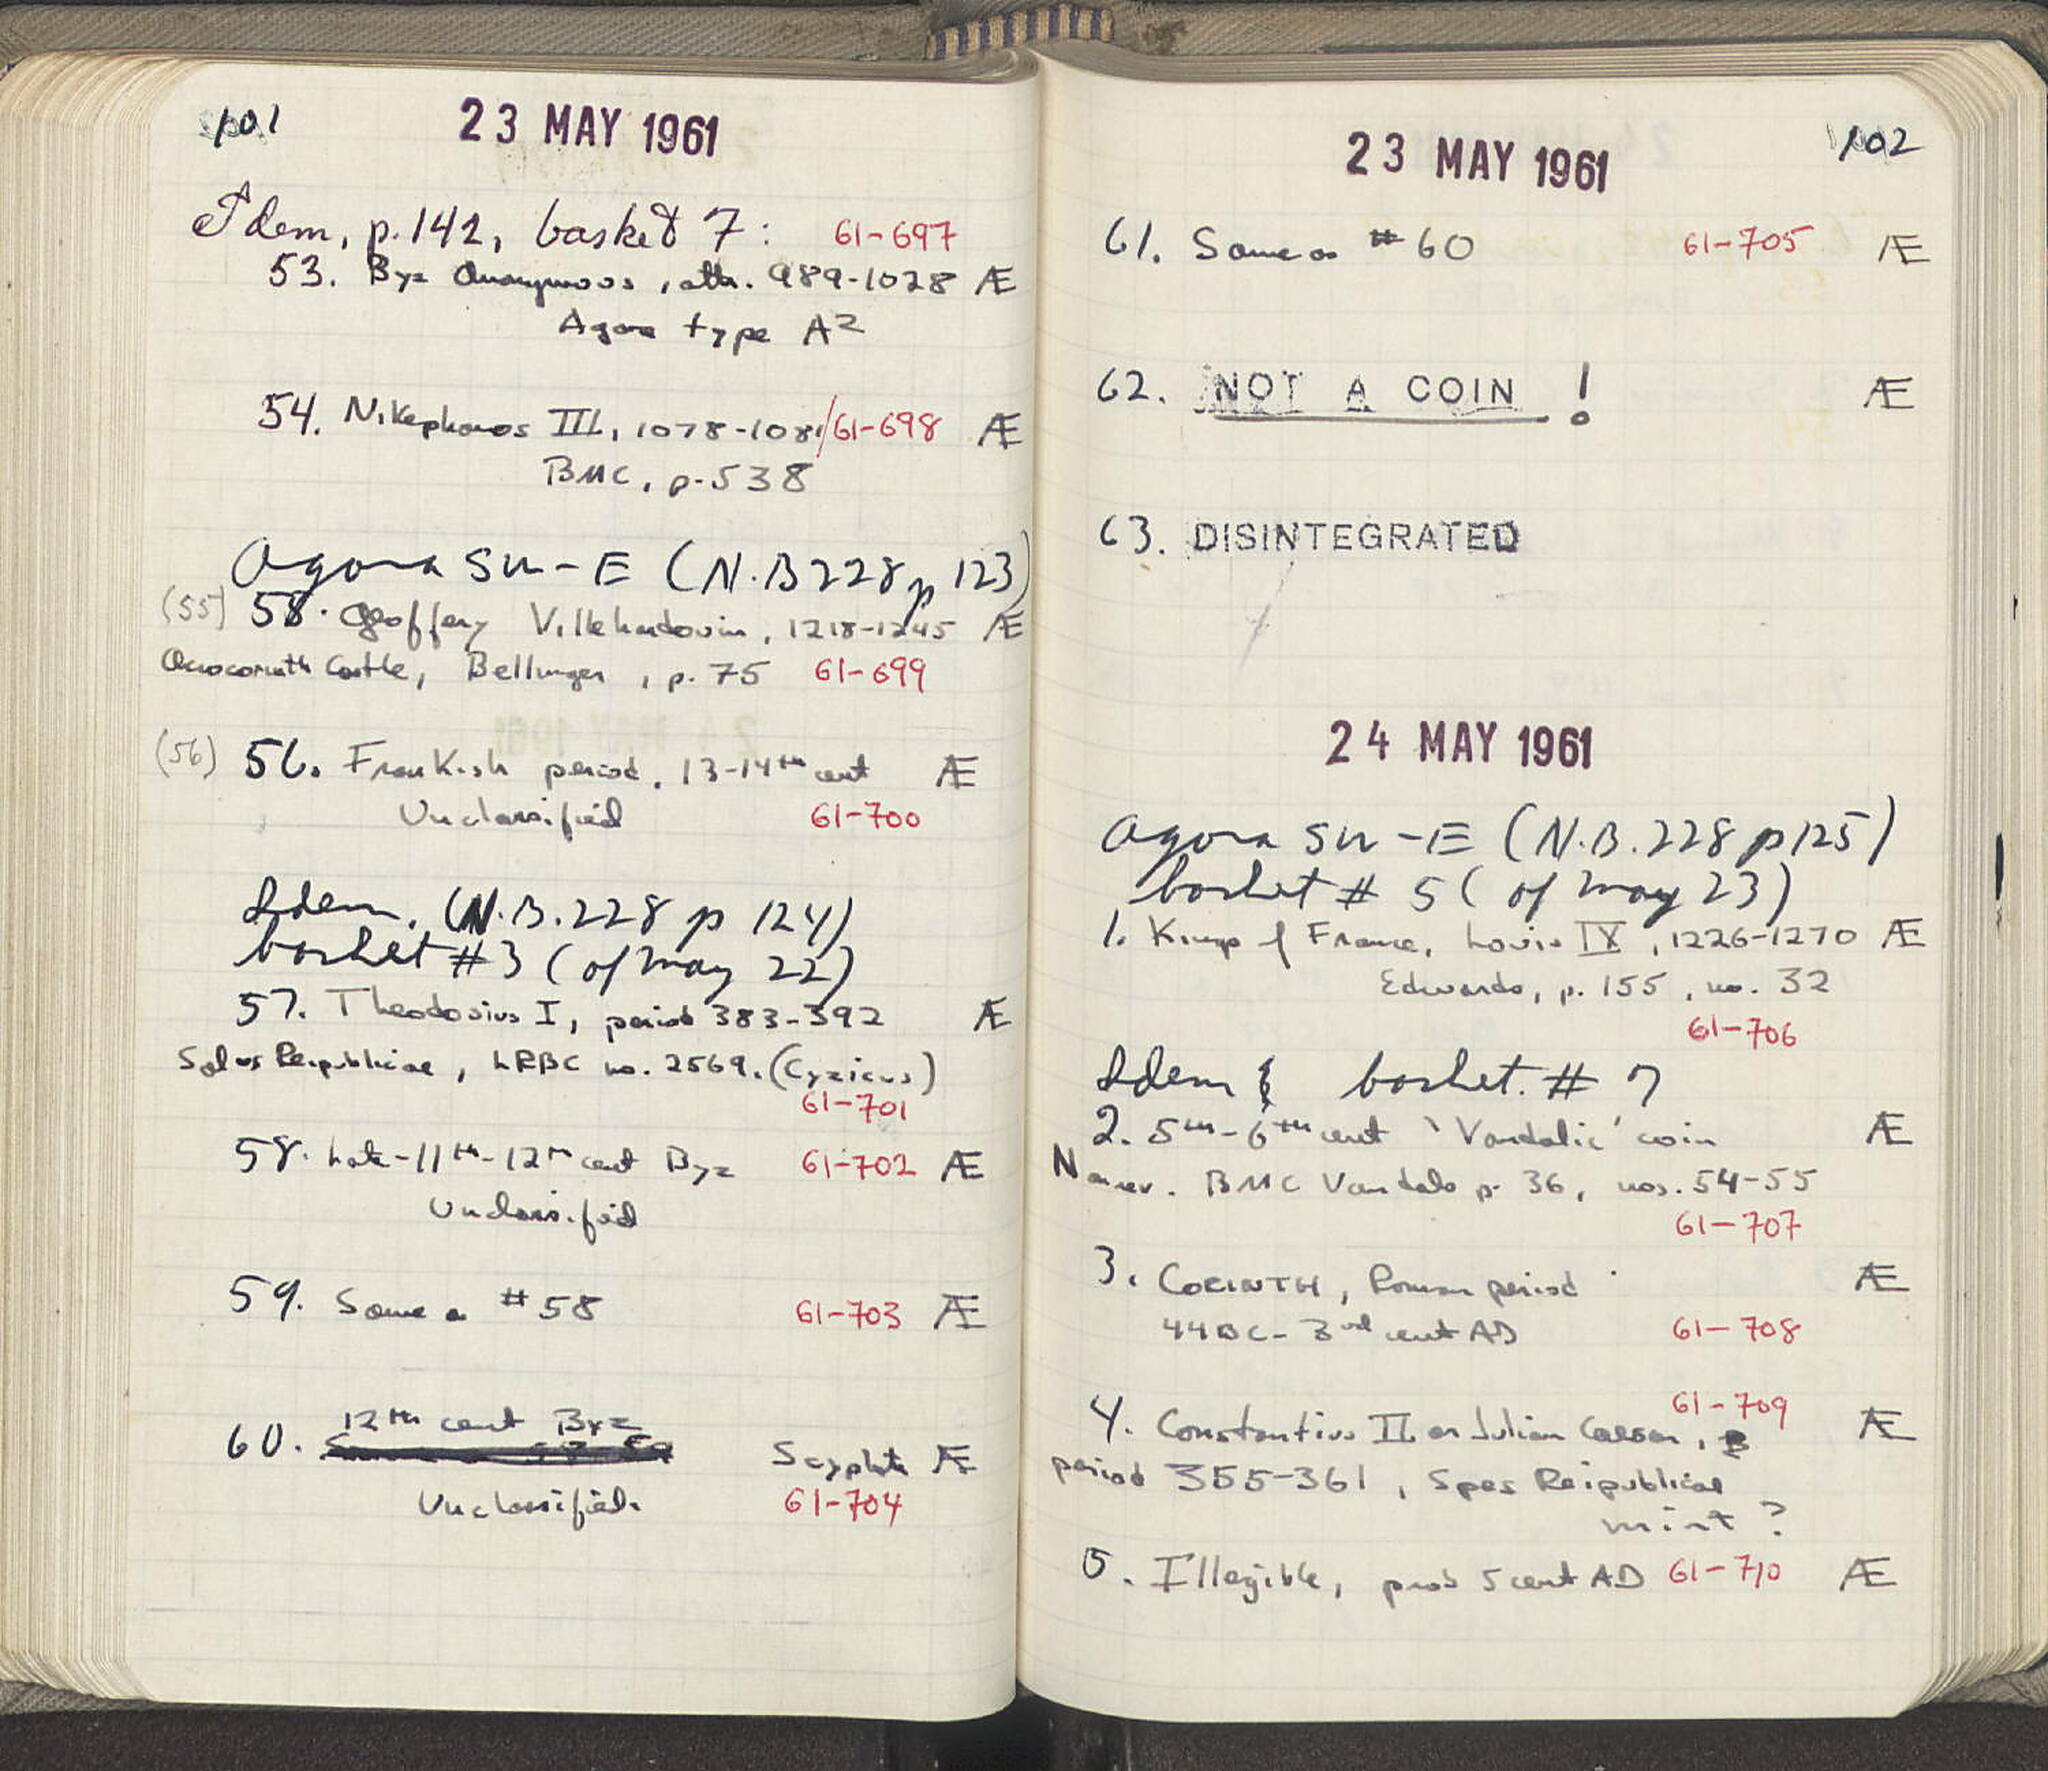 101
23 MAY 1961
Idem, p.142, basket 7: 61-697
53. Byz Anonymous, attr. 989-1028 Æ
Agora type A2
54. Nikephoros III, 1078-1081/61-698 Æ
BMC, p.538
Agora SW-E (N.B 228 p 123)
(55) 58. Geoffery Villehardouin, 1218-1245 Æ
Acrocorinth Castle, Bellinger, p. 75 61-699
(56) 56. Frankish period, 13-14th cent Æ
Unclassified 61-700
Idem. (N.B.228 p 124)
basket #3 (of may 22)
57. Theodosius I, period 383-392 Æ
Salus Reipublicae, LRBC no. 2569. (Cyzicus)
61-701
58. Late-11th-12th cent Byz 61-702 Æ
Unclassified
59. Same as #58 61-703 Æ
12th cent Byz
60. Scyphate Æ
Unclassified. 61-704
102
23 MAY 1961
61. Same as #60 61-705 Æ
62. NOT A COIN ! Æ
63. DISINTEGRATED
24 MAY 1961
Agora SW-E (N.B.228 p 125)
basket # 5 (of may 23)
1. Kings of France, Louis IX, 1226-1270 Æ
Edwards, p. 155, no. 32
61-706
Idem basket. # 7
2. 5th-6th cent 'Vandalic' coin Æ
BMC Vandals p. 36, nos. 54-55
61-707
3. CORINTH, Roman period Æ
44BC-3rd cent AD 61-708
61-709
4. Constantius II or Julian Caesar, Æ
period 355-361, Spes Reipublicae
mint ?
5. Illegible, prob 5 cent AD 61-710 Æ